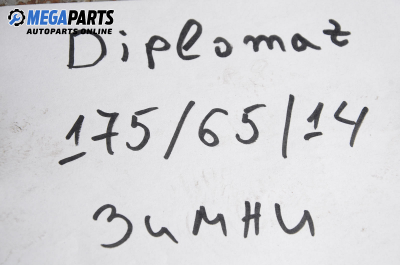 MEGAPARTS
AUTOPARTS ONLINE
Diplomat
175/65/14
Зимни